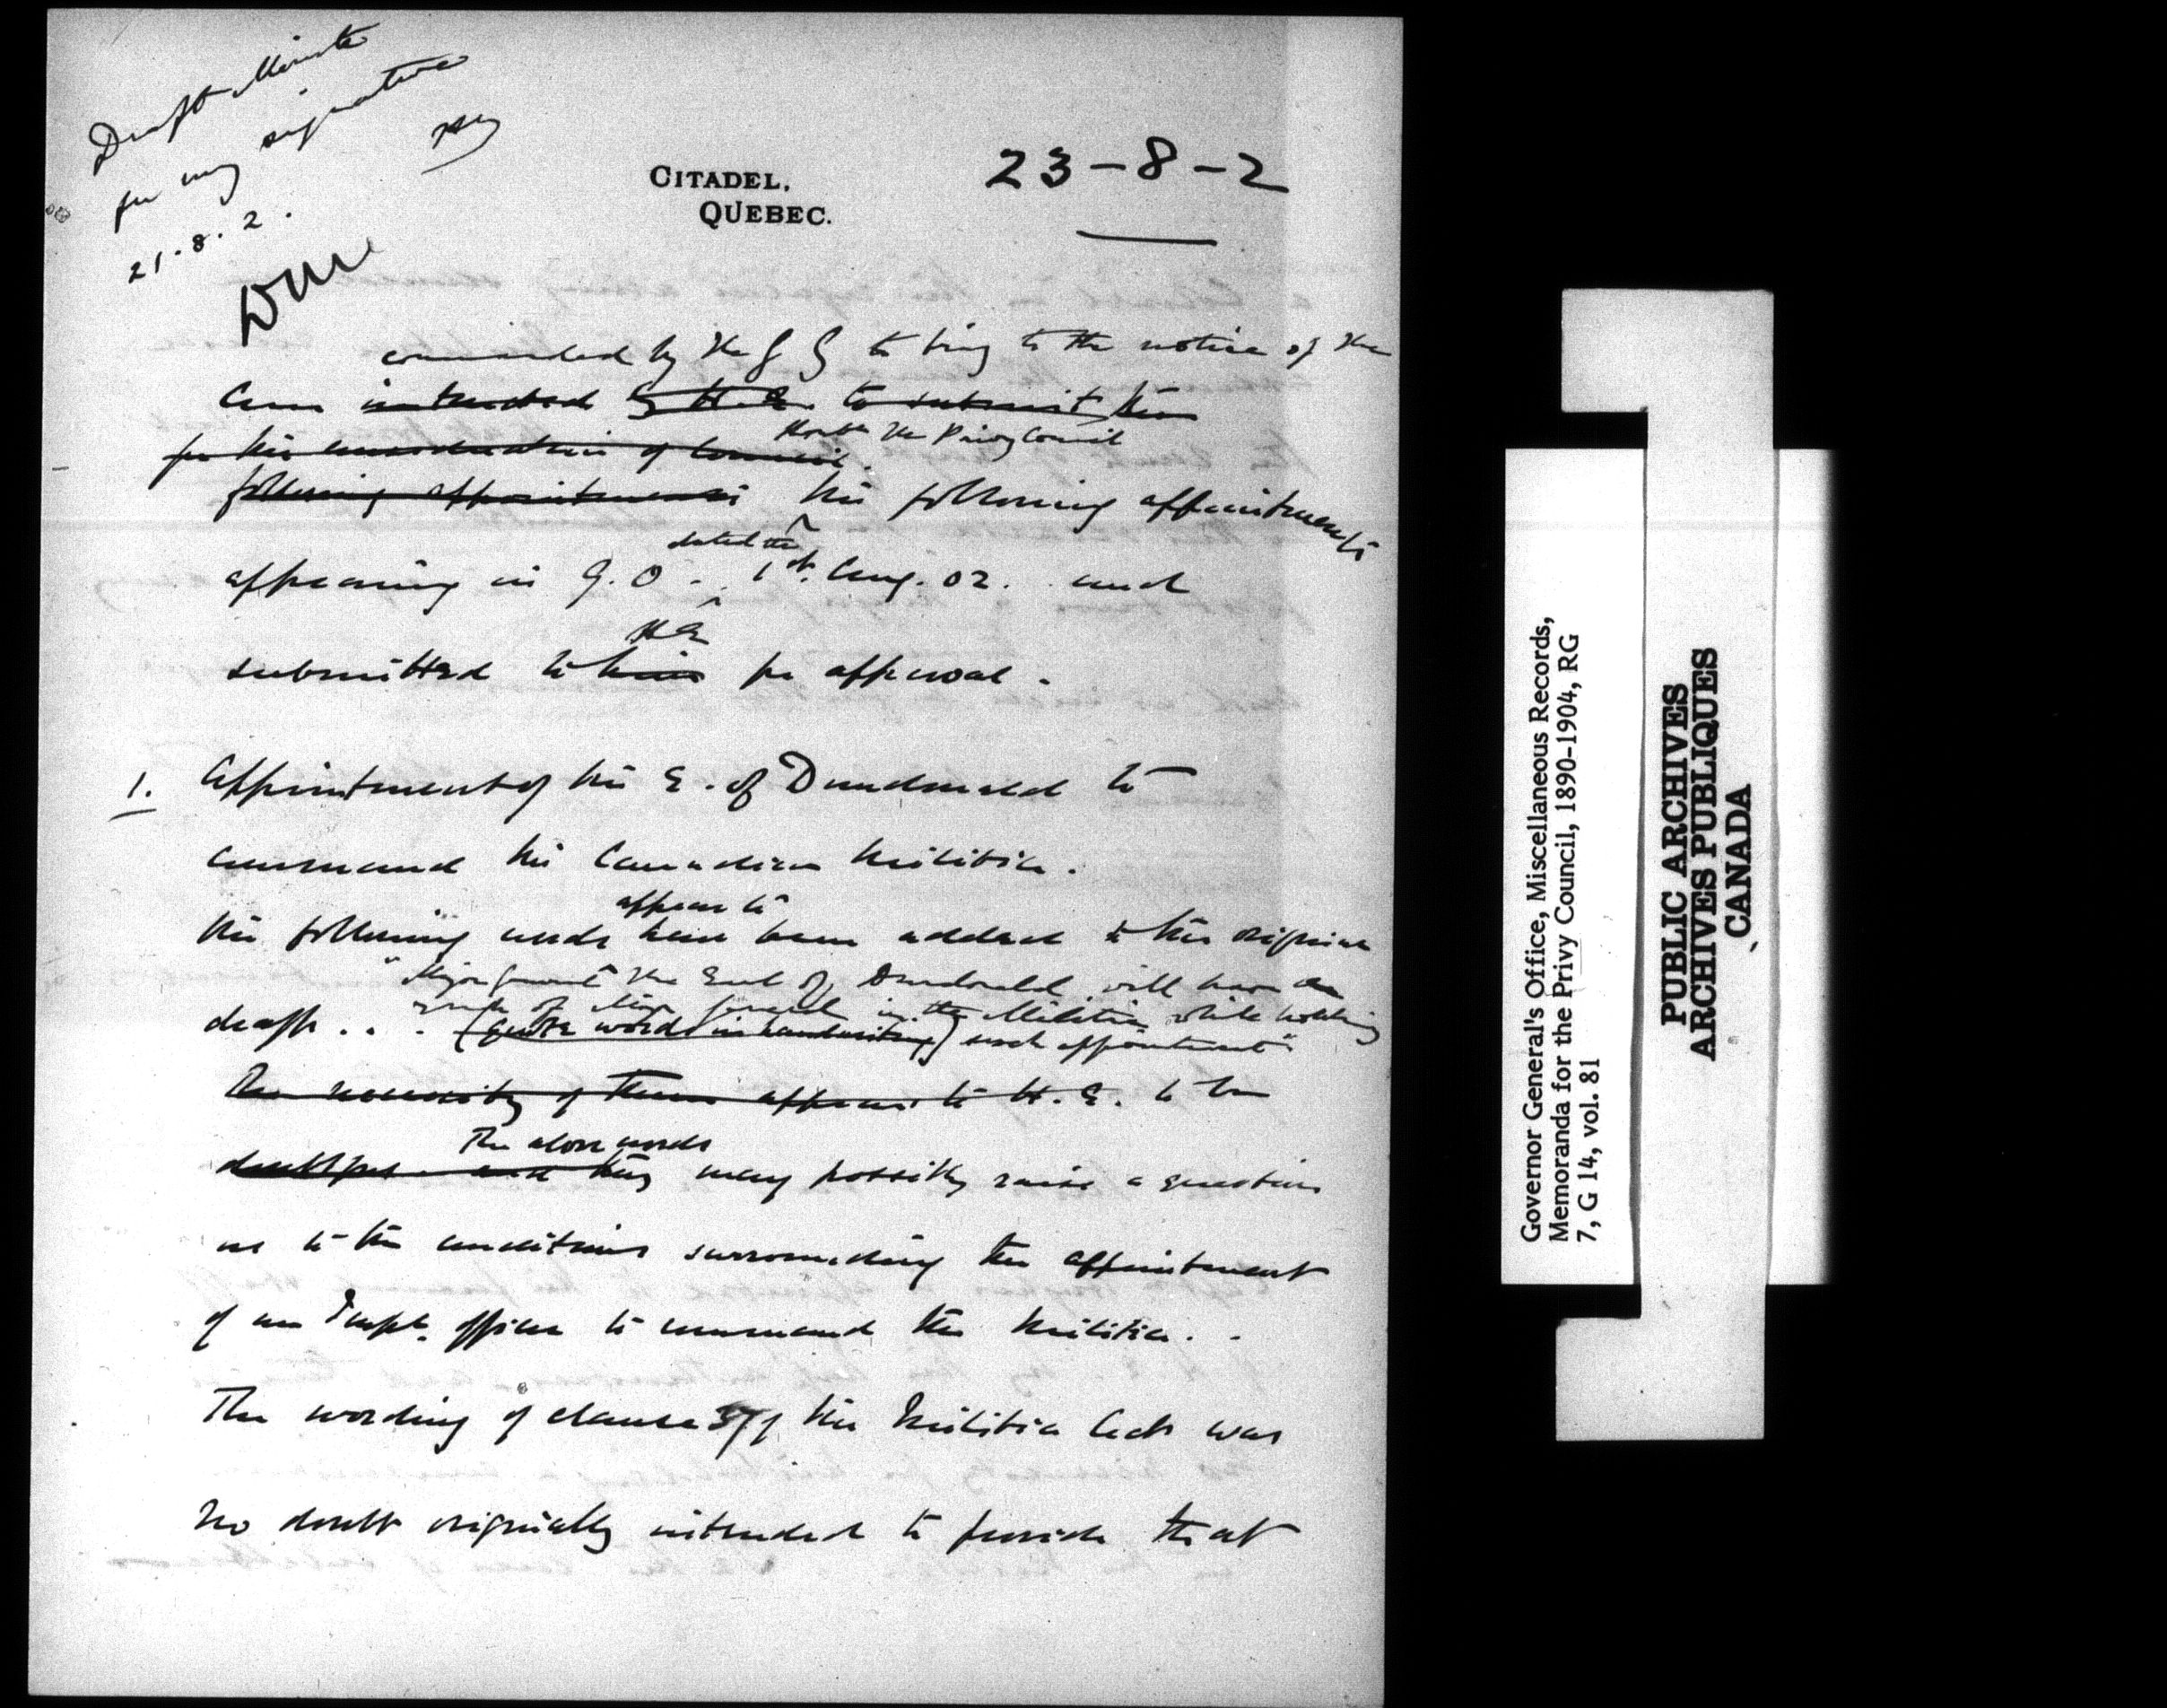 Draft Minute
for my signature
21.8.2.
CITADEL,
QUEBEC.
23-8-2
commanded by the G G to bring to the notice of the
Am instructed by H.E. to submit the
for the consideration of Council.
Honble the Privy Council
following appointments the following appointments
dated the
appearing in G.O. 1st Aug. 02. and
HE
submitted to him for approval.
1. Appointment of the E. of Dundonald to
command the Canadian Militia.
appear to
The following words have been added to the original
"Major General the Earl of Dundonald will have the
rank of Major General in the Militia while holding
draft . . . (quote words in handwriting) such appointment"
The necessity of them appears to H.E. to be
The above words
doubtful and they may possibly raise a question
as to the conditions surrounding the appointment
of an Impl. officer to command the Militia. .
The wording of clause 37 of the Militia Act was
no doubt originally intended to provide that
Governor General's Office, Miscellaneous Records,
Memoranda for the Privy Council, 1890-1904, RG
7, G 14, vol. 81
PUBLIC ARCHIVES
ARCHIVES PUBLIQUES
CANADA